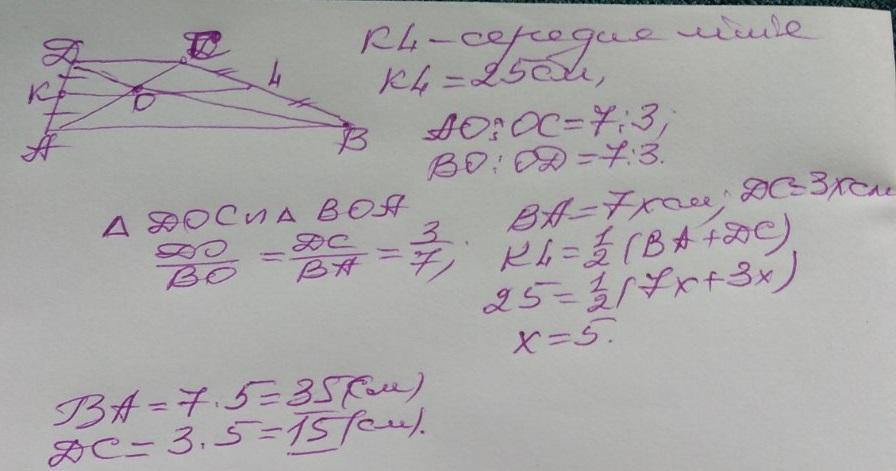 D C
K O L
A B
KL – середня лінія
KL = 25 см,
AO : OC = 7 : 3;
BO : OD = 7 : 3.
△ DOC ∽ △ BOA
DO/BO = DC/BA = 3/7;
BA = 7x см; DC = 3x см
KL = 1/2 (BA + DC)
25 = 1/2 (7x + 3x)
x = 5.
BA = 7 · 5 = 35 (см)
DC = 3 · 5 = 15 (см).